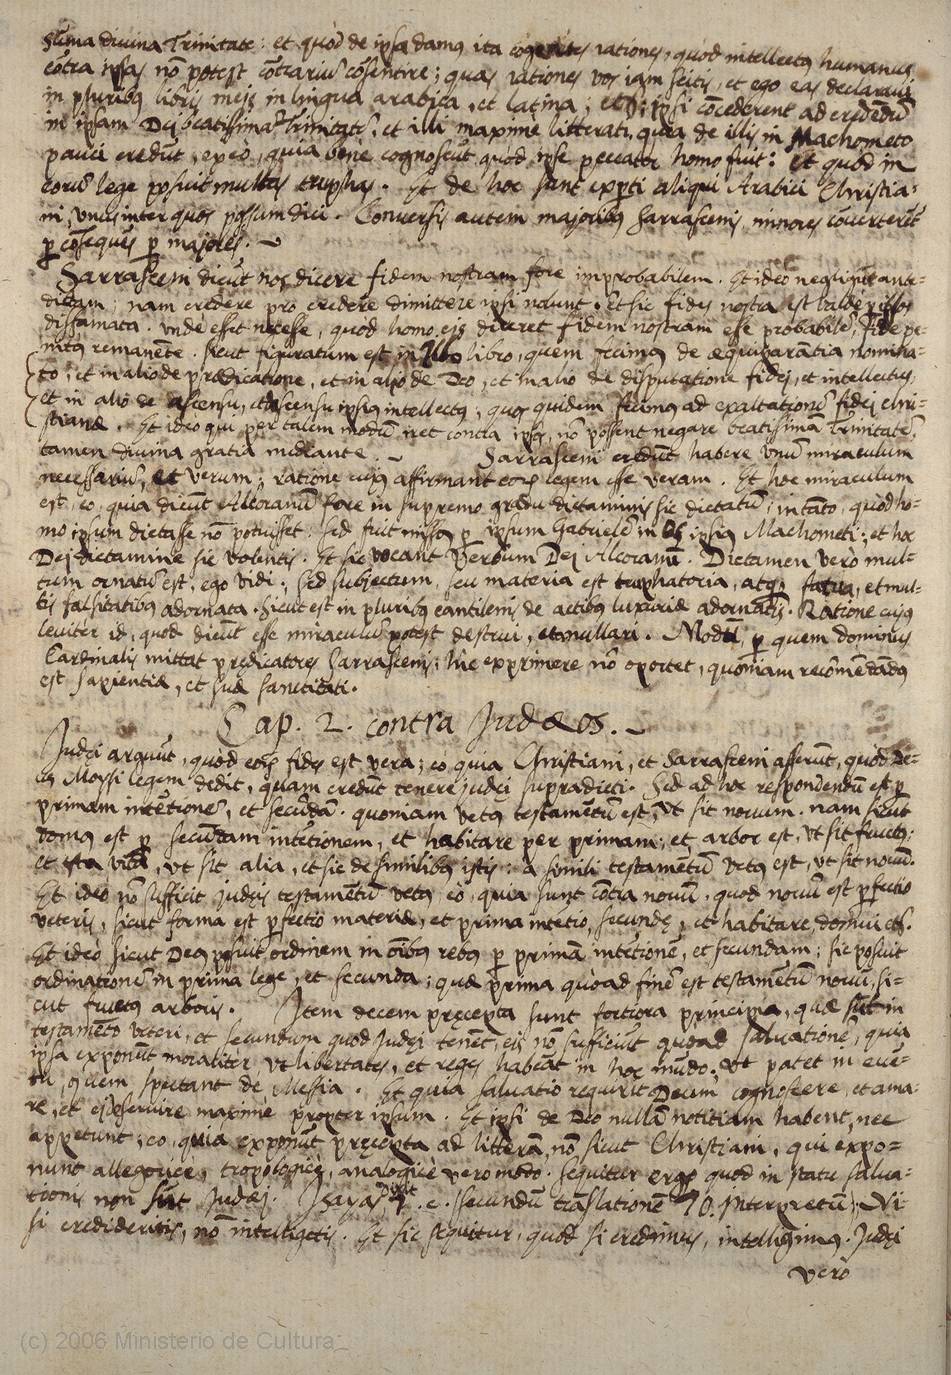 suma divina Trinitate: et quòd de ipsa damus ita cogentes rationes, quòd intellectus humanus
cōtra ipsas nō potest cōtrariū cōsentire; quas rationes vos iam scitis, et ego eas declaravi
in pluribꝰ libris meis in lingua arabica, et latina; et ipsi cōcederent ad credēdū
in ipsam Dei beatissimā Trinitatē, et illi maximè litterati, quia de illis in Machometo
pauci credūt, ex eo, quia benè cognoscūt, quòd ipse peccator homo fuit: et quòd in
eorū lege posuit multas truphas. Et de hoc sunt experti aliqui Arabici Christia-
ni, unus inter quos possum dici. Conversis autem majoribus Sarrascenis, minores cōverterēt
ꝑ cōsequēs ꝑ majores.
Sarrasceni dicūt nos dicere fidem nostram fore improbabilem. Et ideo negligūt ante-
dictam; nam credere pro credere dimittere ipsi nolunt. Et sic fides nostra est valde ꝑ ipsos
diffamata. Unde esset necesse, quod homo eis diceret fidem nostram esse probabilē, fide pe-
nitus remanēte. Sicut figuratum est in illo libro, quem fecimus de æquiparantia nomina-
to, et in alio de prædicatione, et in alio de Deo, et in alio de disputatione fidei, et intellectus,
et in alio de ascensu, et descensu ipsius intellectus, quos quidem fecimus ad exaltationē fidei chri-
stianæ. Et ideo qui per talem modū iret contra ipsos, nō possent negare beatissimā Trinitatē,
tamen divina gratia mediante. Sarrasceni credūt habere unū miraculum
necessariū, et verum; ratione cujus affirmant eorū legem esse veram. Et hoc miraculum
est, eo, quia dicūt Alcoranū fore in supremo gradu dictaminis sic dictatū, in tāto, quòd ho-
mo ipsum dictasse nō potuisset. Sed fuit missus ꝑ ipsum Gabrielē in os ipsius Machometi; et hoc
Dei dictamine sic volentis. Et sic vocant Verbum Dei Alcoranū. Dictamen verò mul-
tum ornatū est, ego vidi; sed subjectum, seu materia est truphatoria, atq; fatua, et mul-
tis falsitatibus adornata. Sicut est in pluribꝰ cantilenis de actibus luxuriæ adornatis. Ratione cujus
leviter id, quod dicūt esse miraculū potest destrui, et anullari. Modū, ꝑ quem dominus
Cardinalis mittat prędicatores Sarrascenis, hic exprimere nō oportet, quoniam recōmendādus
est sapientiæ, et suæ sanctitati.
Cap. 2. contra Judæos.
Judęi arguūt, quòd eorū fides est vera; eò quia Christiani, et Sarrasceni asserūt, quòd De-
us Moysi legem dedit, quam credūt tenere judęi supradicti. Sed ad hoc respondendū est ꝑ
primam intētionē, et secūdā. quoniam vetus testamētū est, ut sit novum. nam sicut
domus est ꝑ secūdam intētionem, et habitare per primam; et arbor est, ut sit fructus;
et ista vita, ut sit alia, et sic de similibus istis: à simili testamētū vetus est, ut sit novū.
Et ideò nō sufficit judęis testamētū vetus, eò, quia sunt cōtra novū, quod novū est ꝑfectio
veteris, sicut forma est ꝑfectio materiæ, et prima intētio, secundę, et habitare, domui etc.
Et ideò sicut Deus posuit ordinem in oībus rebus ꝑ primā intētionē, et secundam; sic posuit
ordinationē in prima lege, et secunda; quæ prima quoad finē est testamētū novū, si-
cut fructus arboris. Item decem pręcepta sunt fortiora principia, quæ sūt in
testamēto veteri, et secundum quod Judęi tenēt, eis nō sufficiūt quoad salvationē, quia
ipsa exponūt moraliter, ut libertates, et reges habeāt in hoc mūdo, ut patet in eve-
tu, quem spectant de Messia. Et quia salvatio requirit Deum cognoscere, et ama-
re, et ei deservire maximè propter ipsum. Et ipsi de Deo nullā notitiam habent, nec
appetunt; eo, quia exponūt pręcepta ad litterā, nō sicut Christiani, qui expo-
nunt allegoricè, tropologicè, analogicè vero modo. Sequitur ergo quod in statu salva-
tionis non sūt Judęi. Isayas dixit 7. c. secundū trāslationē 70. Interpretū; Ni
si credideritis, nō intelligetis. Et sic sequitur, quod si credimus, intelligimus. Judęi
verò
(c) 2006 Ministerio de Cultura